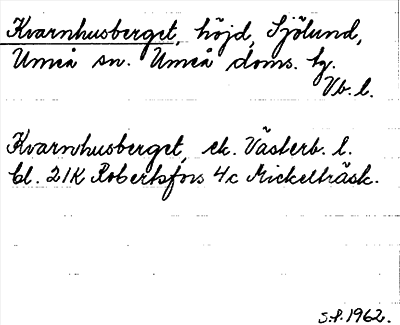 Kvarnhusberget, höjd, Sjölund,
Umeå sn. Umeå doms. hg.
Vb. l.
Kvarnhusberget, ek. Västerb. l.
bl. 21K Robertsfors 4c Mickelträsk.
S.P. 1962.